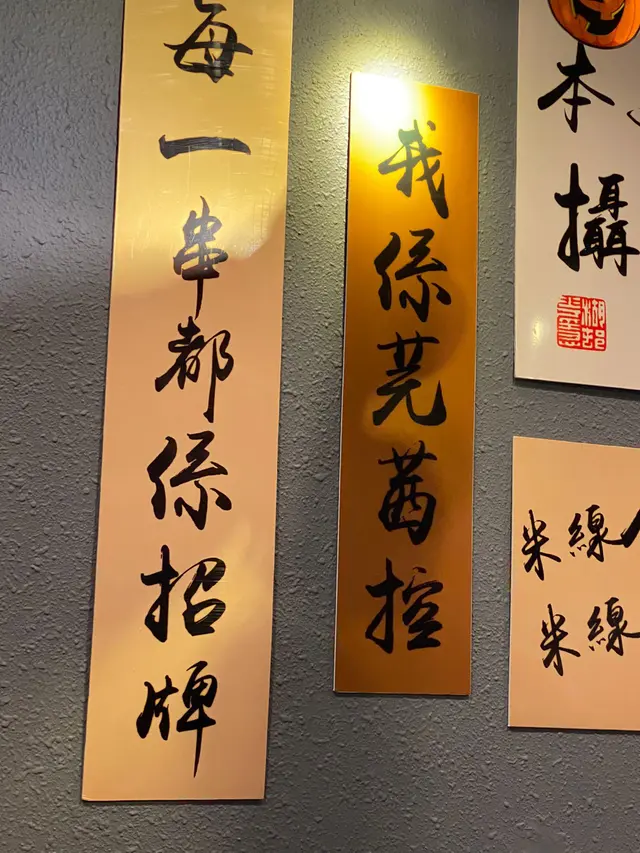 每一串都係招牌
我係芫茜控
本攝
米線
米線